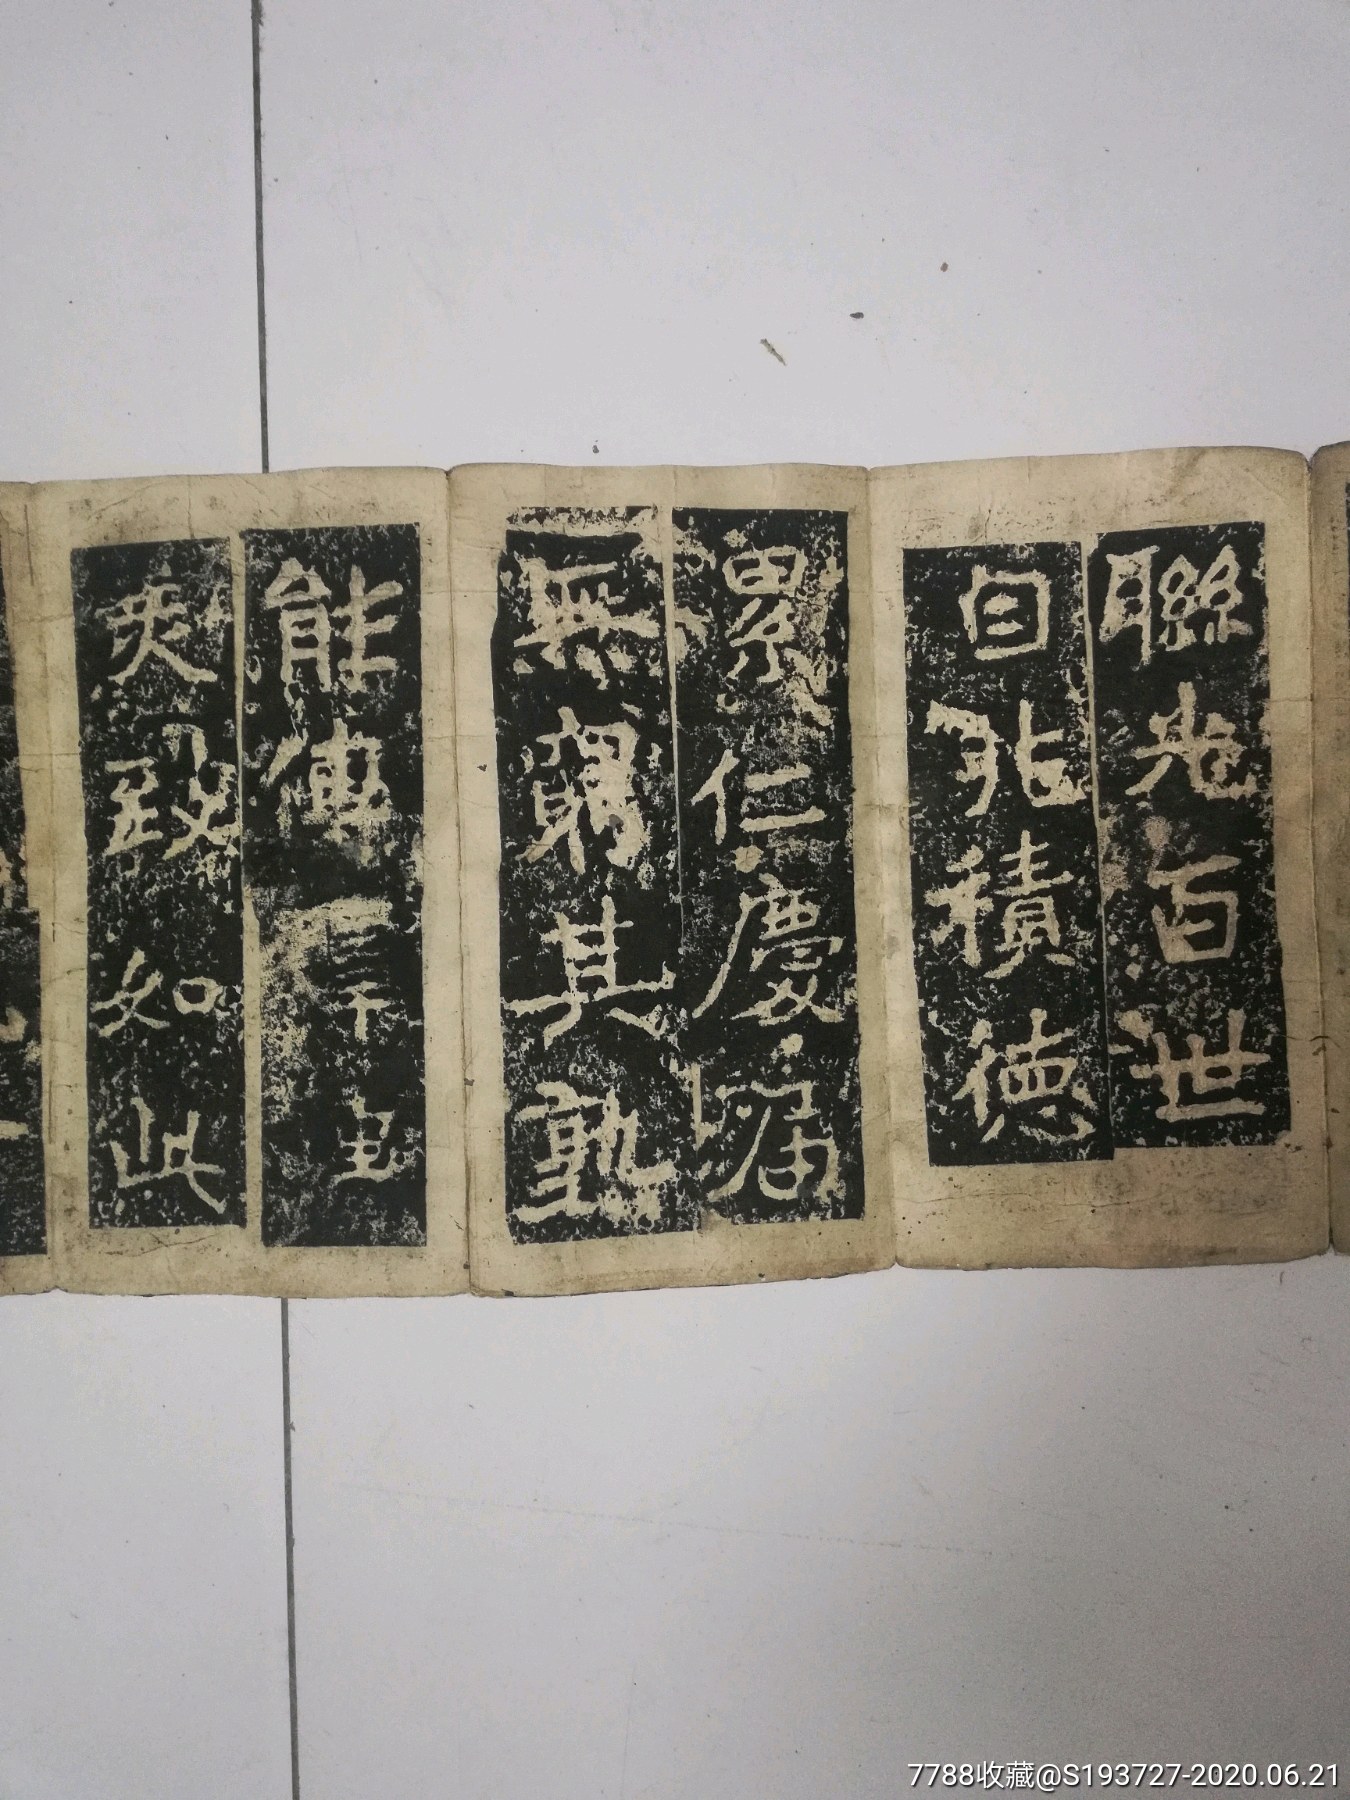 聯光百世
自非積德
累仁慶屆
無窮其塾
能傳
奕致如此
7788收藏@S193727-2020.06.21